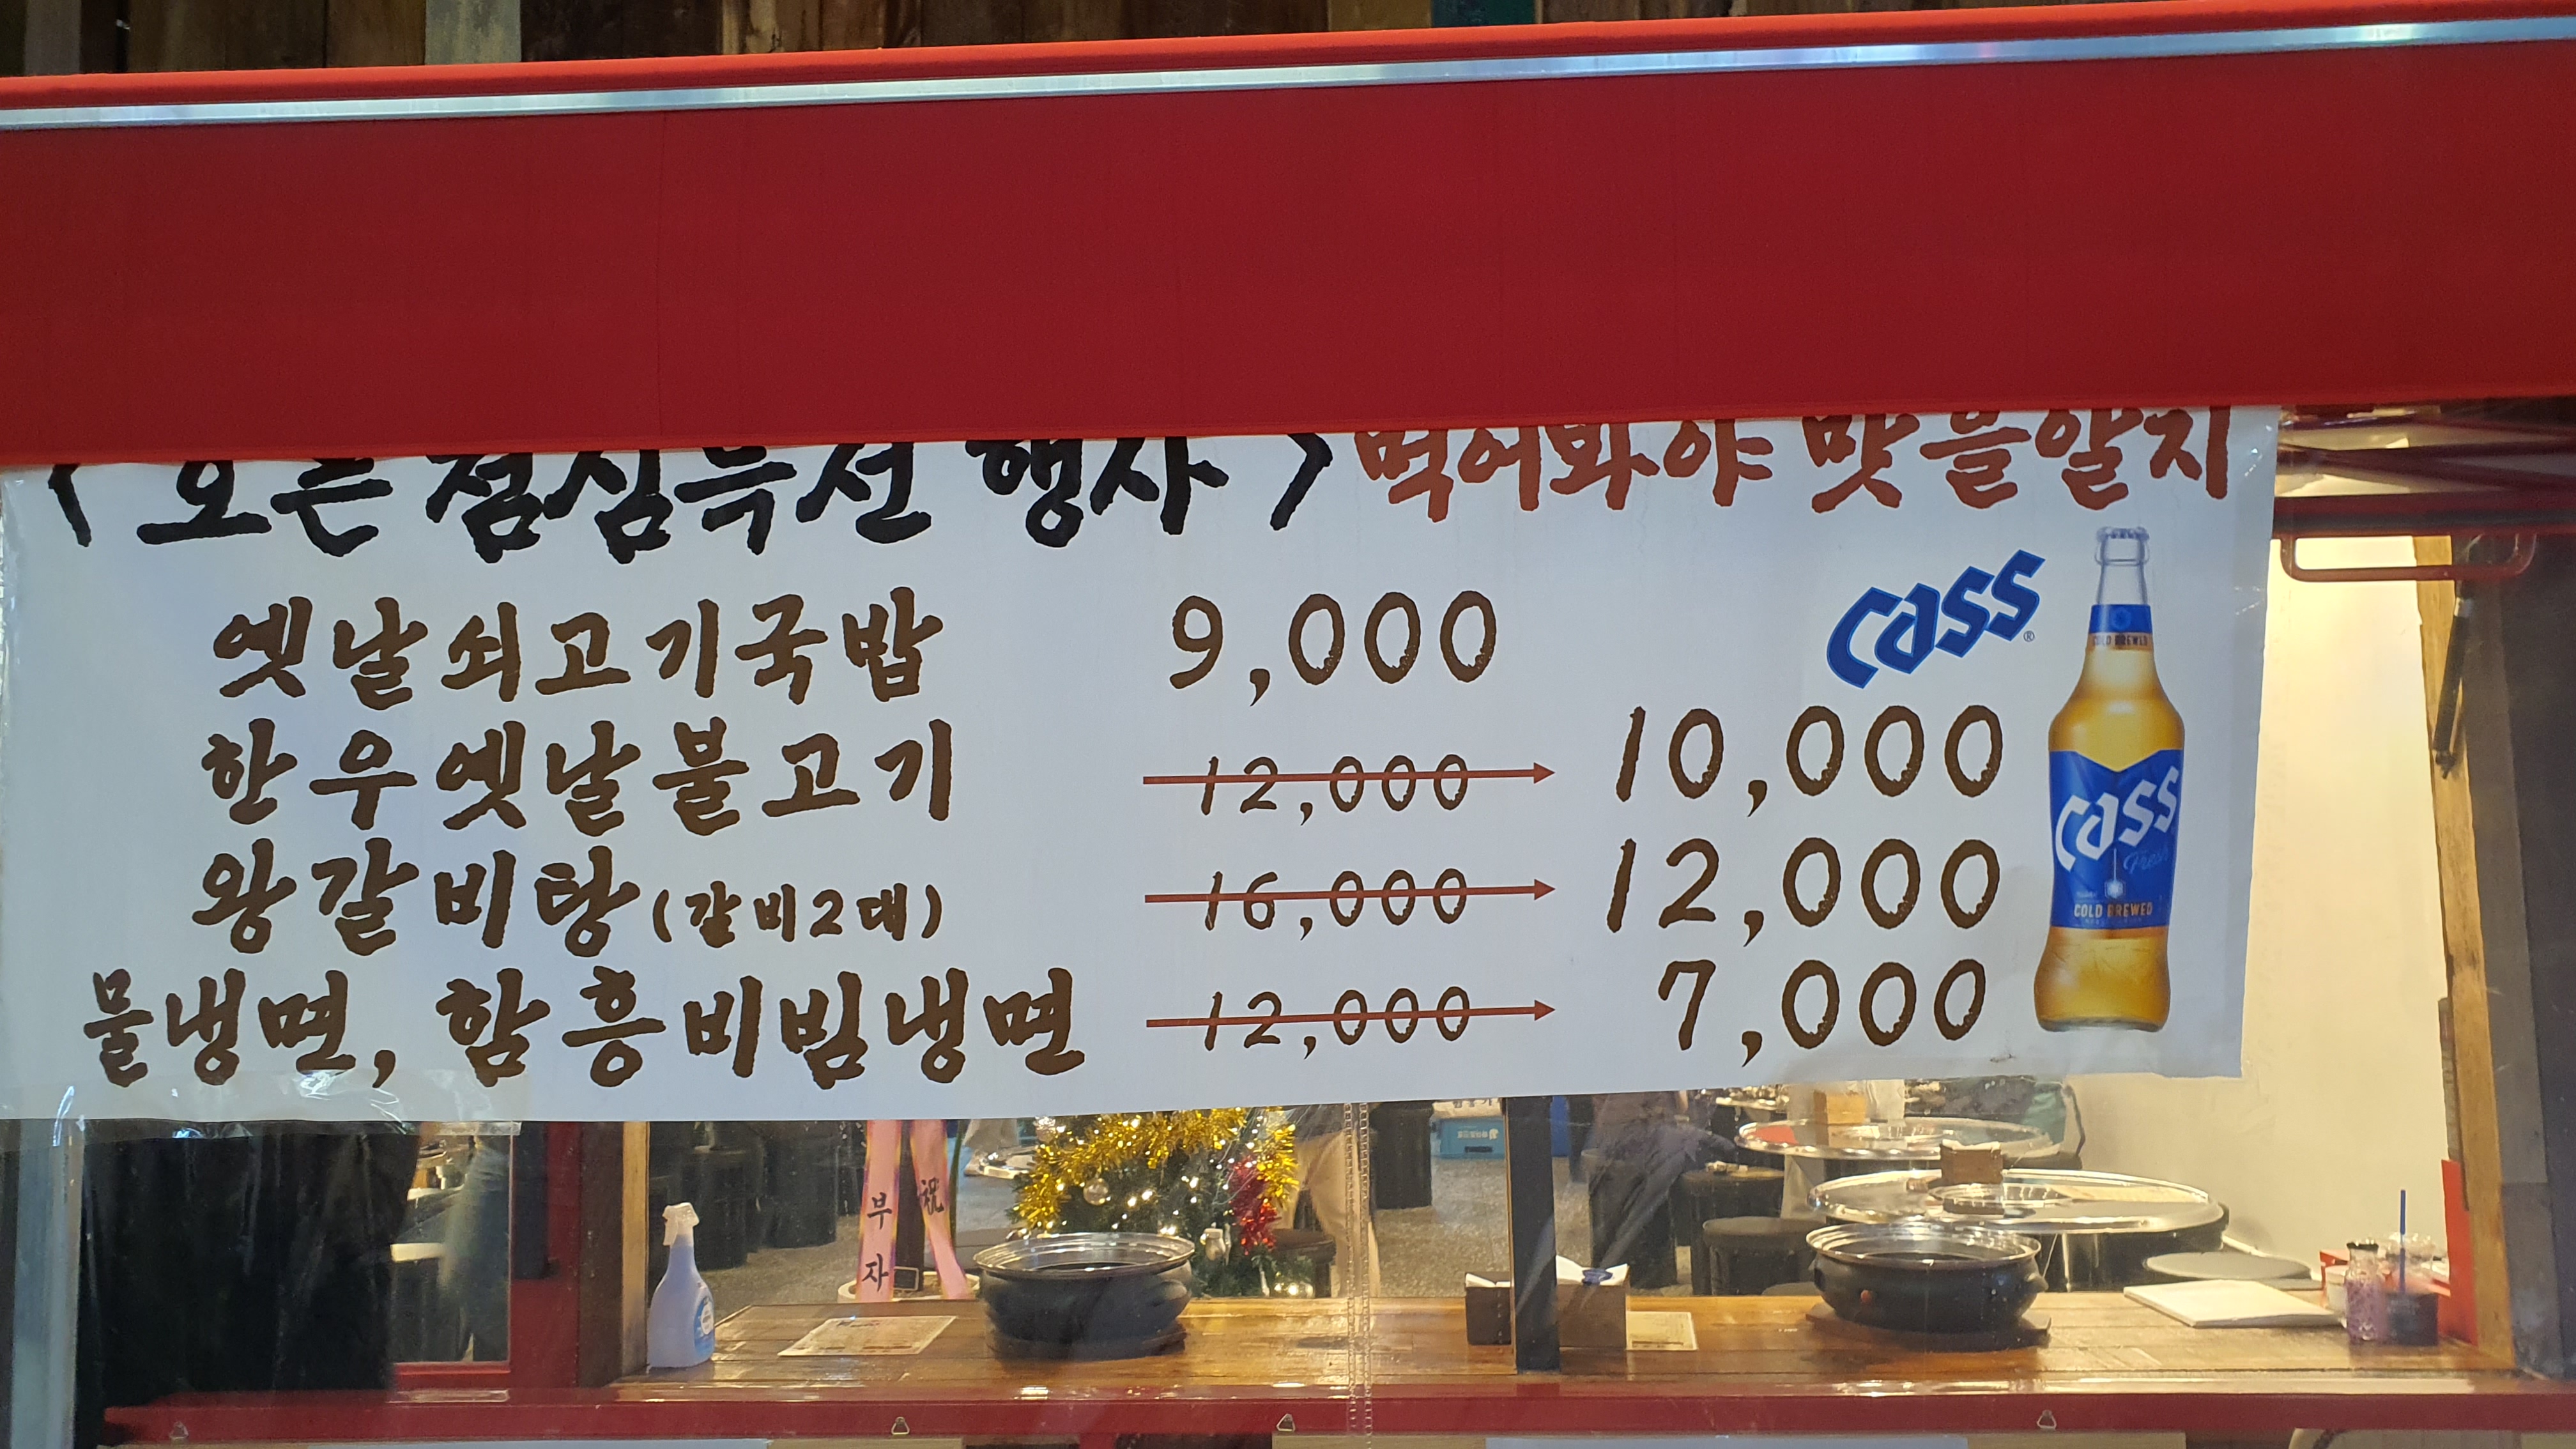 < 오픈 점심특선 행사 > 먹어봐야 맛을알지
Cass
옛날쇠고기국밥 9,000
한우옛날불고기 12,000 → 10,000
왕갈비탕(갈비2대) 16,000 → 12,000
물냉면, 함흥비빔냉면 12,000 → 7,000
COLD BREWED
Cass
Fresh
COLD BREWED
부자
祝